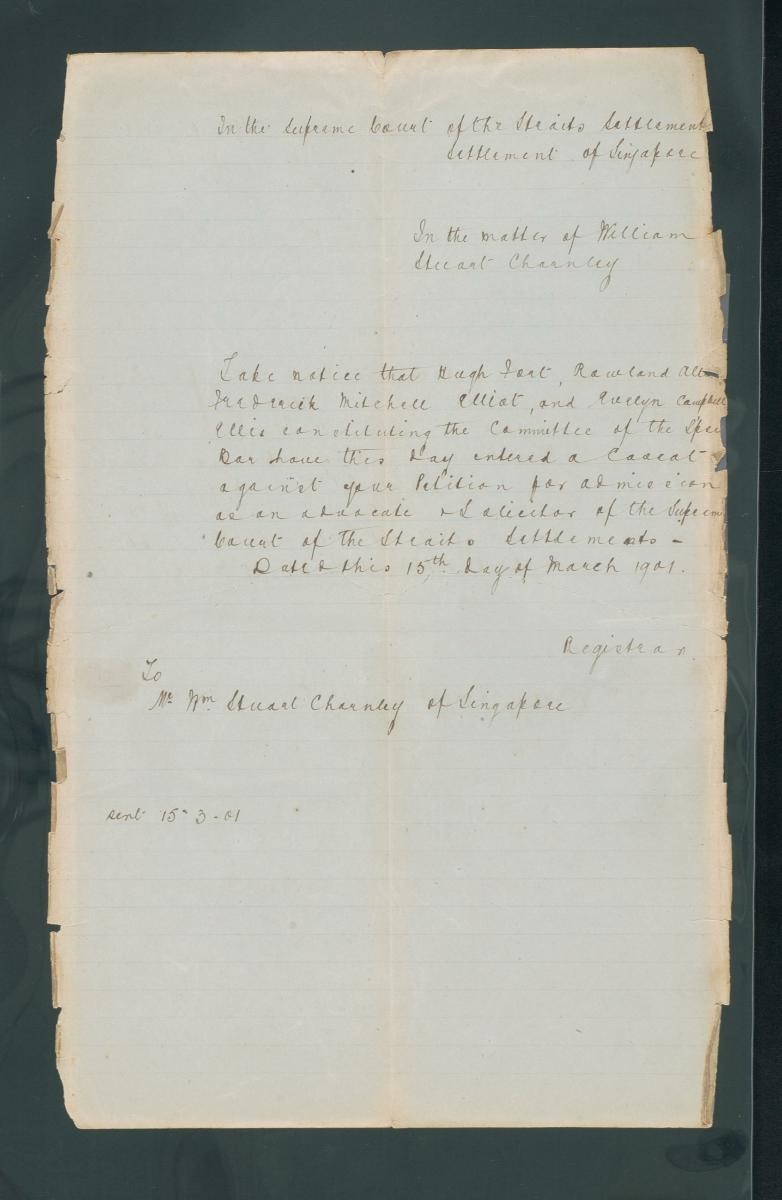 In the Supreme Court of the Straits Settlement
Settlement of Singapore
In the matter of William
Stuart Charnley
Take notice that Hugh Fort, Rowland All
Frederick Mitchell Elliot, and Evelyn Campbell
Ellis constituting the Committee of the
Bar have this day entered a Caveat
against your Petition for admission
as an advocate & Solicitor of the Suprem
Court of the Straits Settlements -
Dated this 15th day of March 1901.
Registrar.
To
Mr Wm Stuart Charnley of Singapore
sent 15-3-01